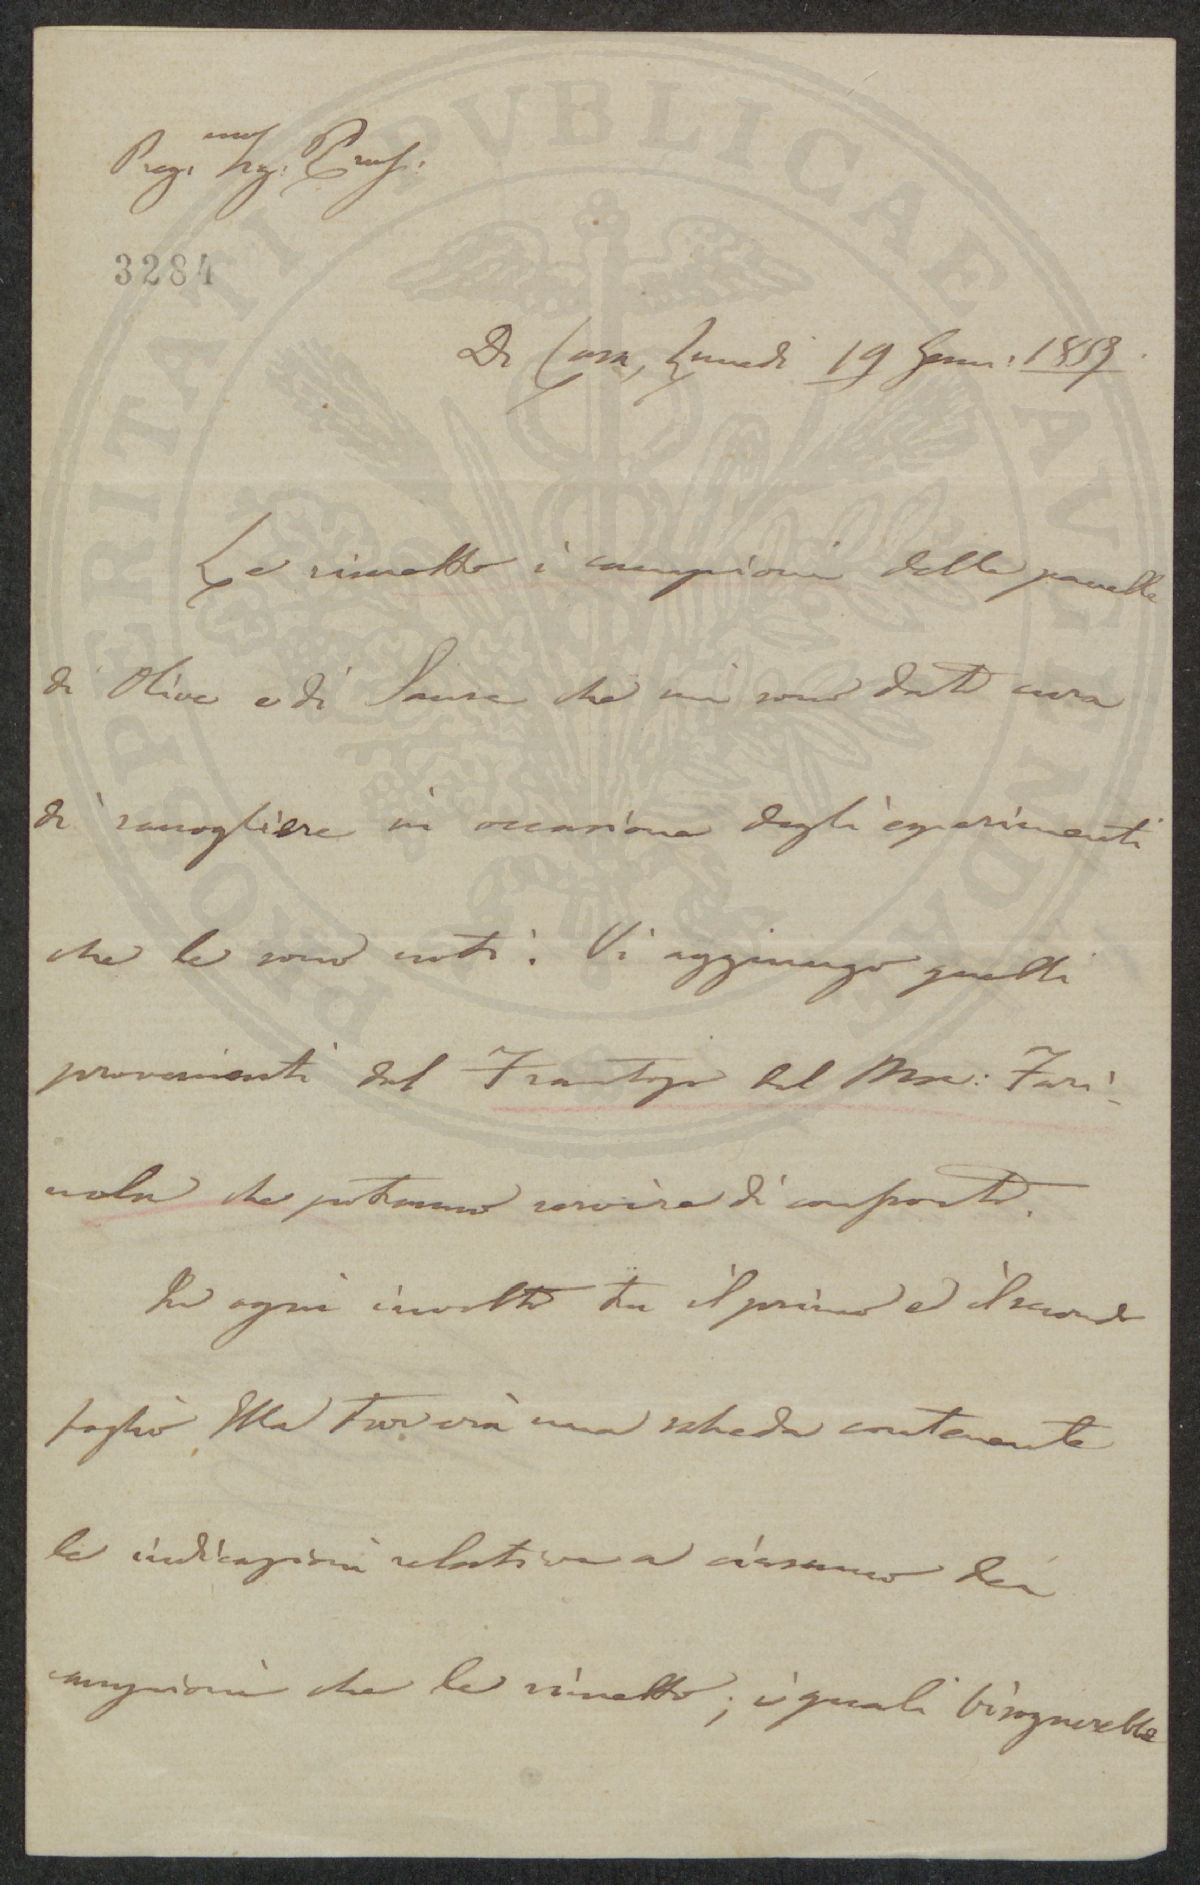 Preg.mo Sig. Prof.
3284
Di Casa, Lunedì 19 Genn. 1859.
Le rimetto i campioni delle panelle
di Olive e di Sanse che mi sono dato cura
di raccogliere in occasione degli esperimenti
che le sono noti. Vi aggiungo quelli
provenienti dal Frantojo del Mse: Fari-
nola che potranno servire di confronto.
In ogni involto tra il primo e il secondo
foglio Ella troverà una scheda contenente
le indicazioni relative a ciascuno dei
campioni che le rimetto; i quali bisognerebbe
PROSPERITATI PVBLICAE AVGENDAE